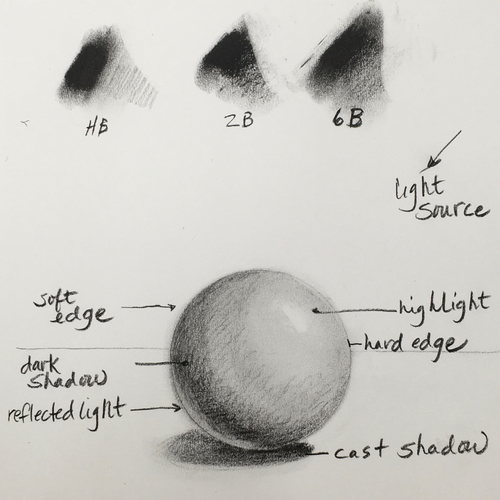 HB
2B
6B
light
source
soft
edge
highlight
hard edge
dark
shadow
reflected light
cast shadow